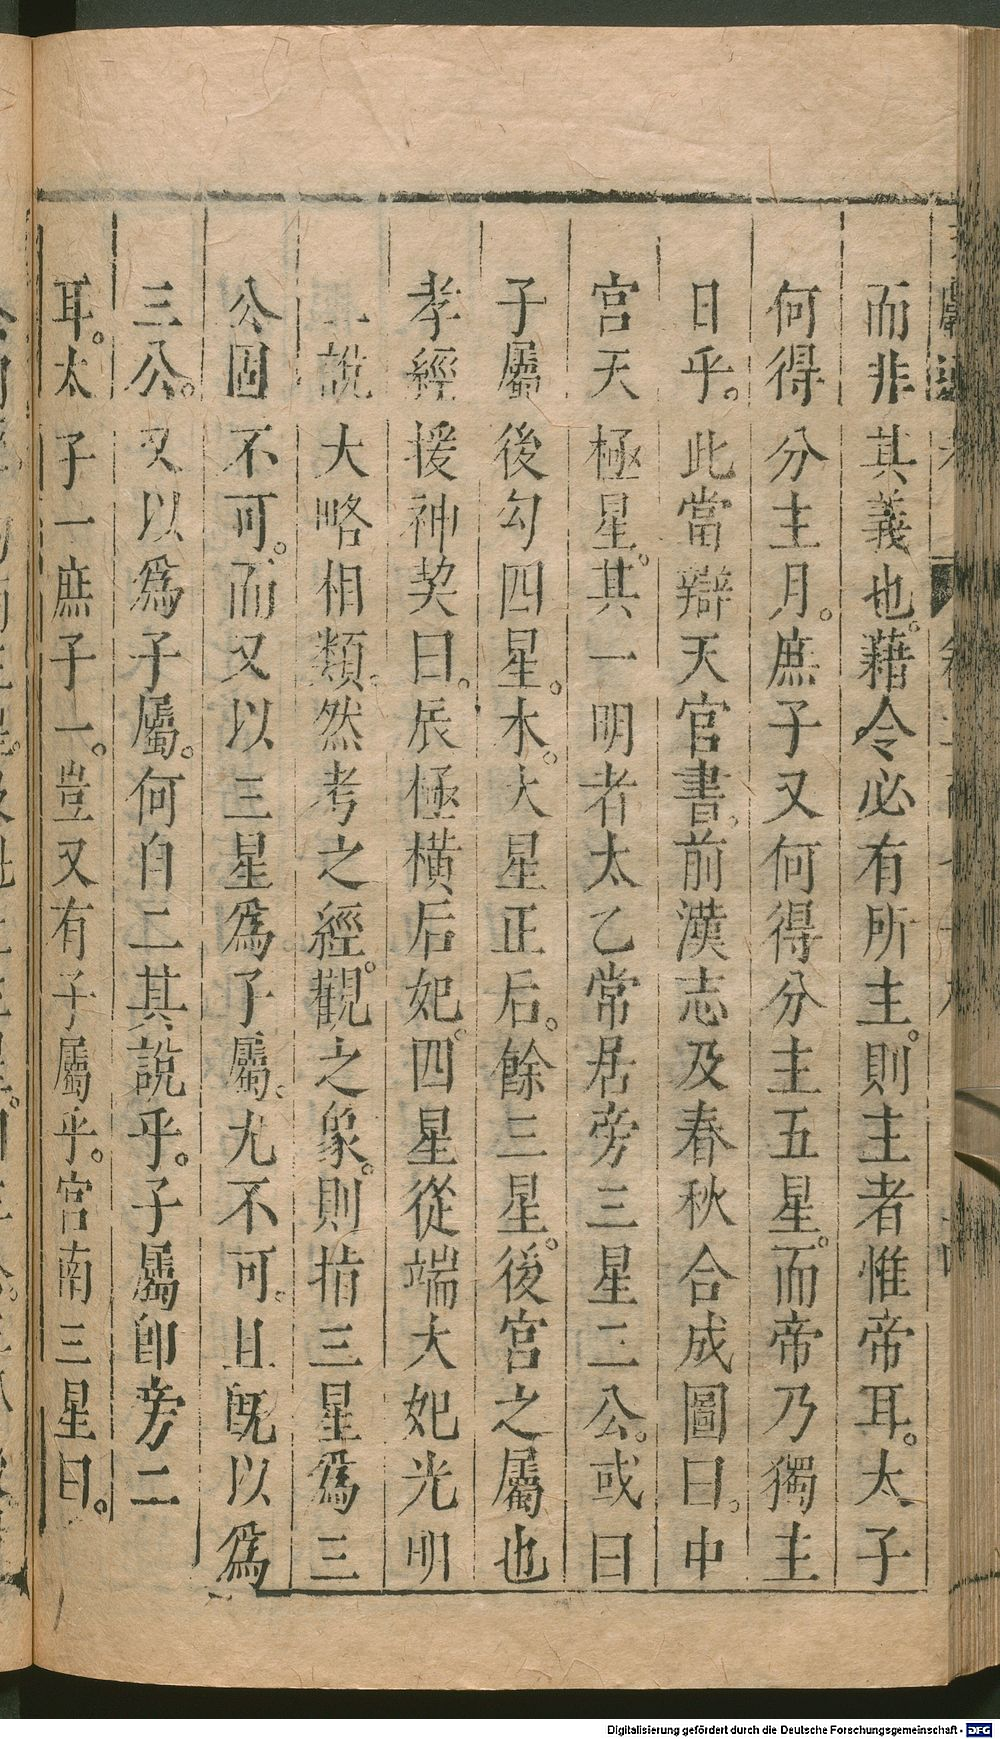 而非其義也。藉令必有所主。則主者惟帝耳。太子
何得分主月。庶子又何得分主五星。而帝乃獨主
日乎。此當辯天官書。前漢志及春秋合成圖曰。中
宮天極星。其一明者太乙常居旁三星三公。或曰
子屬後勾四星。木。大星正后。餘三星。後宮之屬也
孝經援神契曰。辰極橫后妃。四星從端大妃光明
說大略相類。然考之經。觀之象。則指三星爲三
公固不可。而又以三星爲子屬。尤不可。且既以爲
三公。又以爲子屬。何自二其說乎。子屬卽旁二
耳。太子一庶子一。豈又有子屬乎。宮南三星曰。
Digitalisierung gefördert durch die Deutsche Forschungsgemeinschaft - DFG